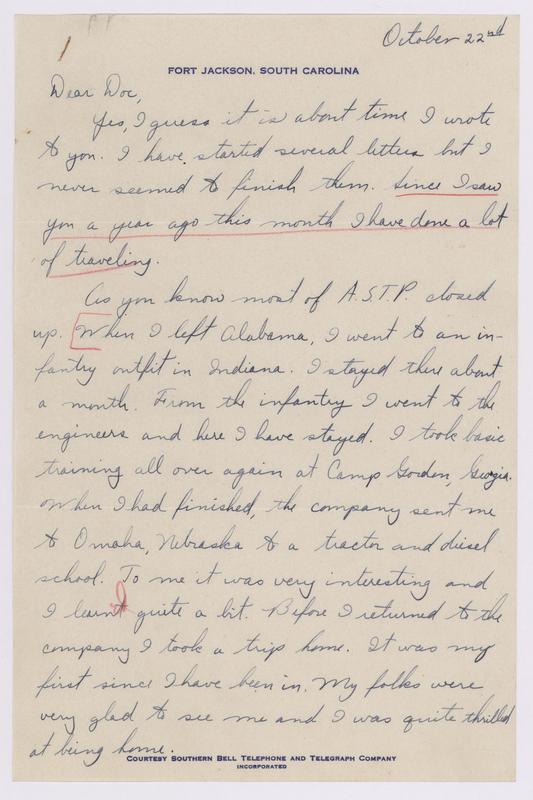 October 22nd
1
FORT JACKSON, SOUTH CAROLINA
Dear Doc,
Yes, I guess it is about time I wrote
to you. I have started several letters but I
never seemed to finish them. Since I saw
you a year ago this month I have done a lot
of traveling.
As you know most of A.S.T.P. closed
up. [When I left Alabama, I went to an in-
fantry outfit in Indiana. I stayed there about
a month. From the infantry I went to the
engineers and here I have stayed. I took basic
training all over again at Camp Gordon, Georgia.
When I had finished, the company sent me
to Omaha, Nebraska to a tractor and diesel
school. To me it was very interesting and
I learnt quite a bit. Before I returned to the
company I took a trip home. It was my
first since I have been in. My folks were
very glad to see me and I was quite thrilled
at being home.
COURTESY SOUTHERN BELL TELEPHONE AND TELEGRAPH COMPANY
INCORPORATED